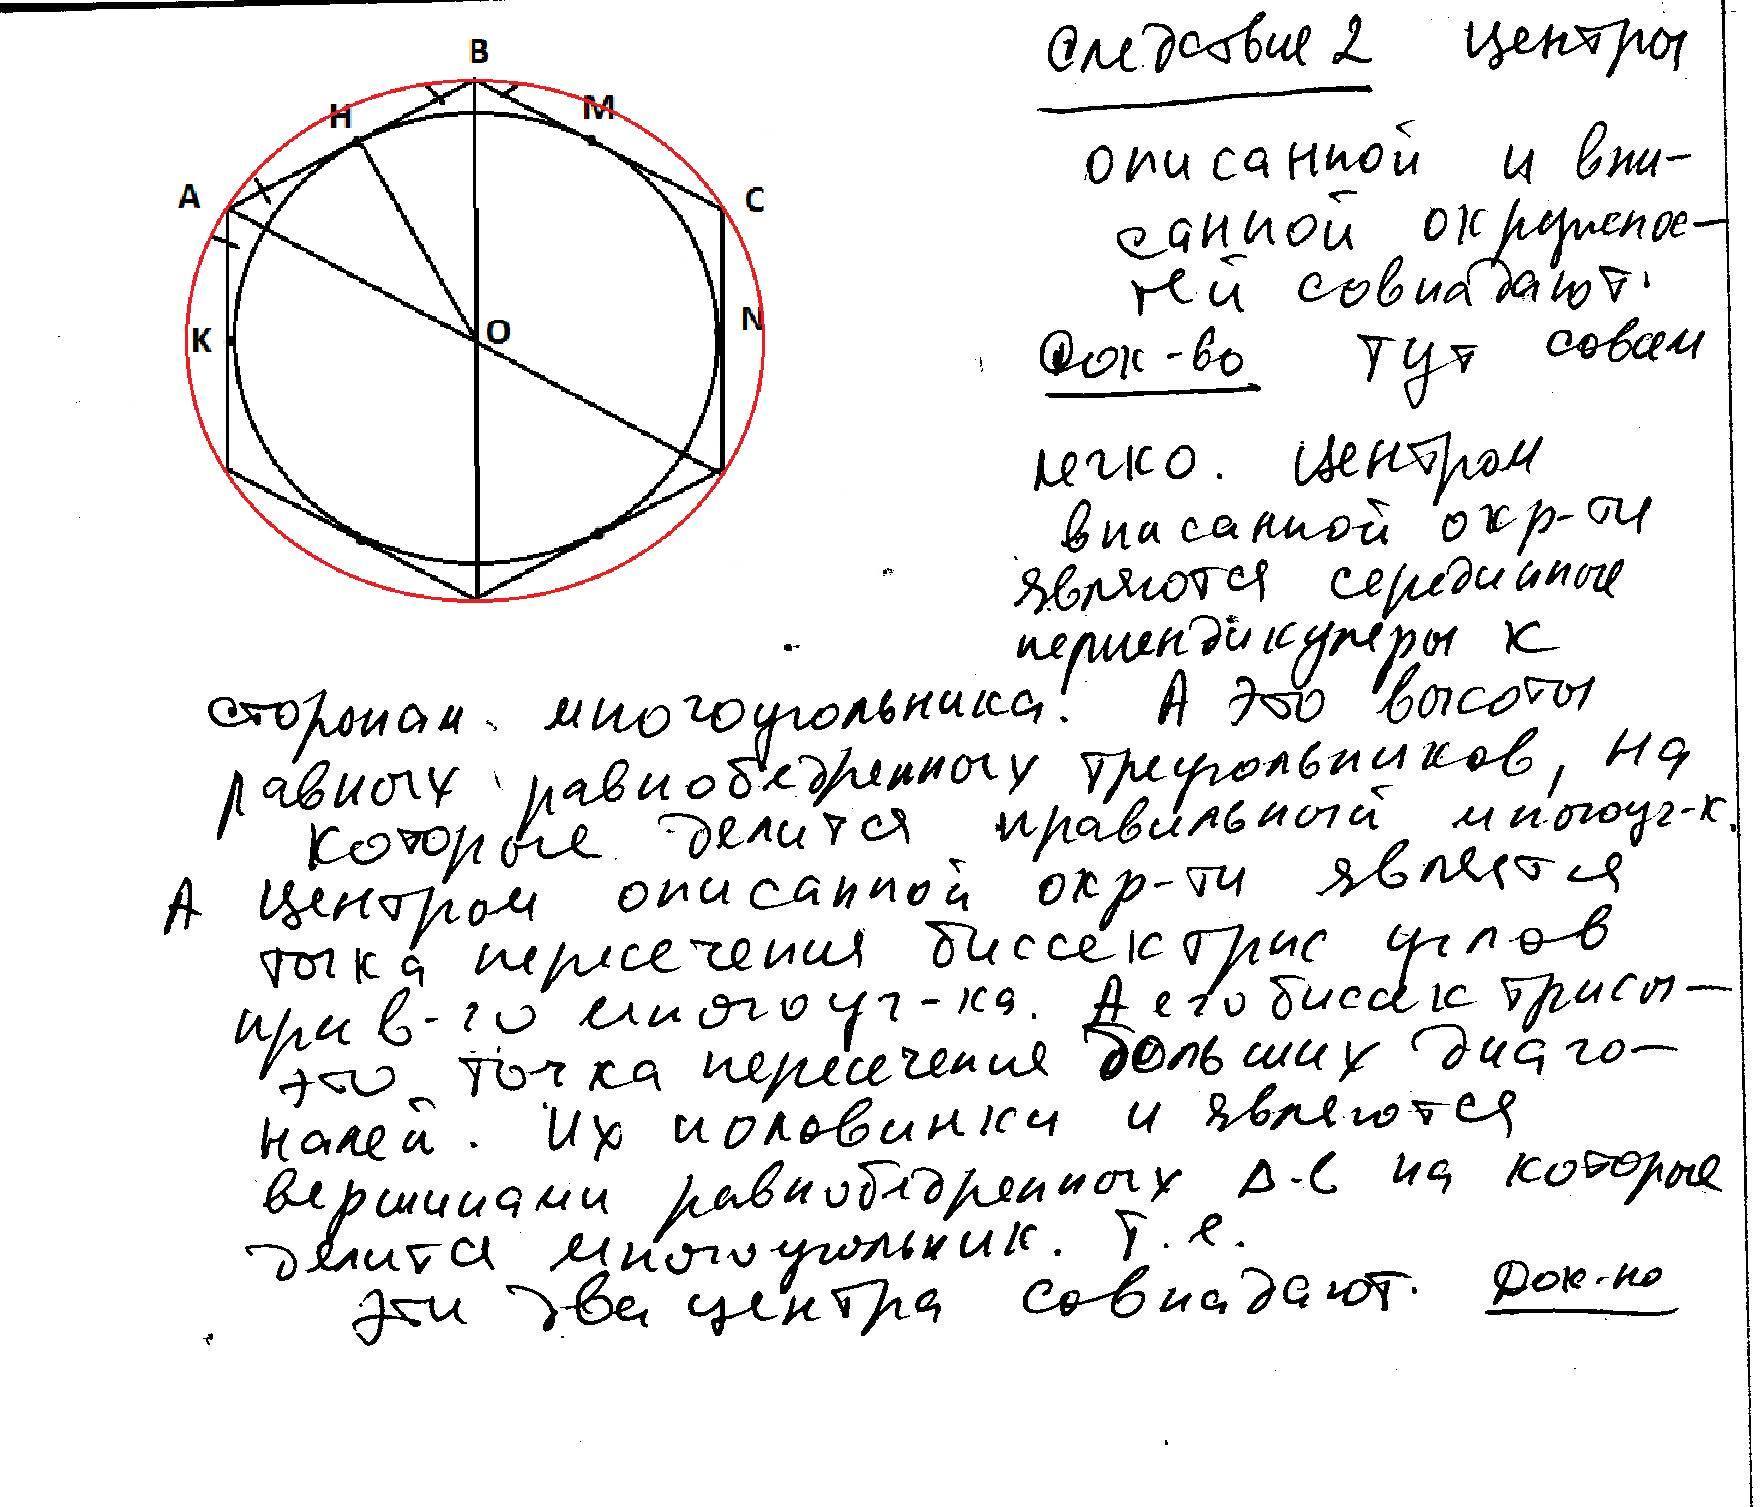 B
H
M
A
C
K
O
N
Следствие 2 Центры
описанной и впи-
санной окружнос-
тей совпадают.
Док-во Тут совем
легко. Центром
вписанной окр-ти
являются серединные
перпендикуляры к
сторонам многоугольника. А это высоты
равных равнобедренных треугольников, на
которые делится правильный многоуг-к.
А Центром описанной окр-ти является
точка пересечения биссектрис углов
прав-го многоуг-ка. А его биссектрисы-
это точка пересечения больших диаго-
налей. Их половинки и являются
вершинами равнобедренных Δ-в на которые
делится многоугольник. Т.е.
эти два центра совпадают. Док-но